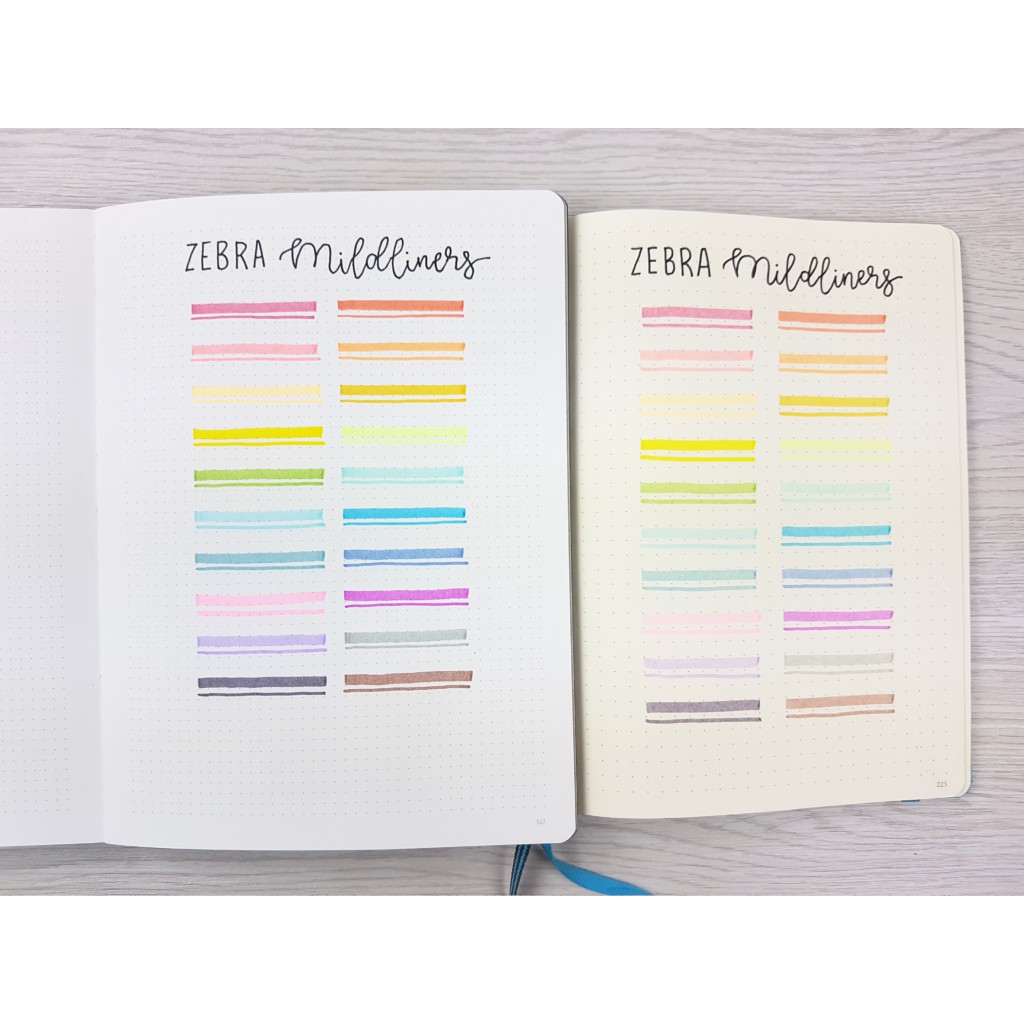 ZEBRA Mildliners
167
ZEBRA Mildliners
225